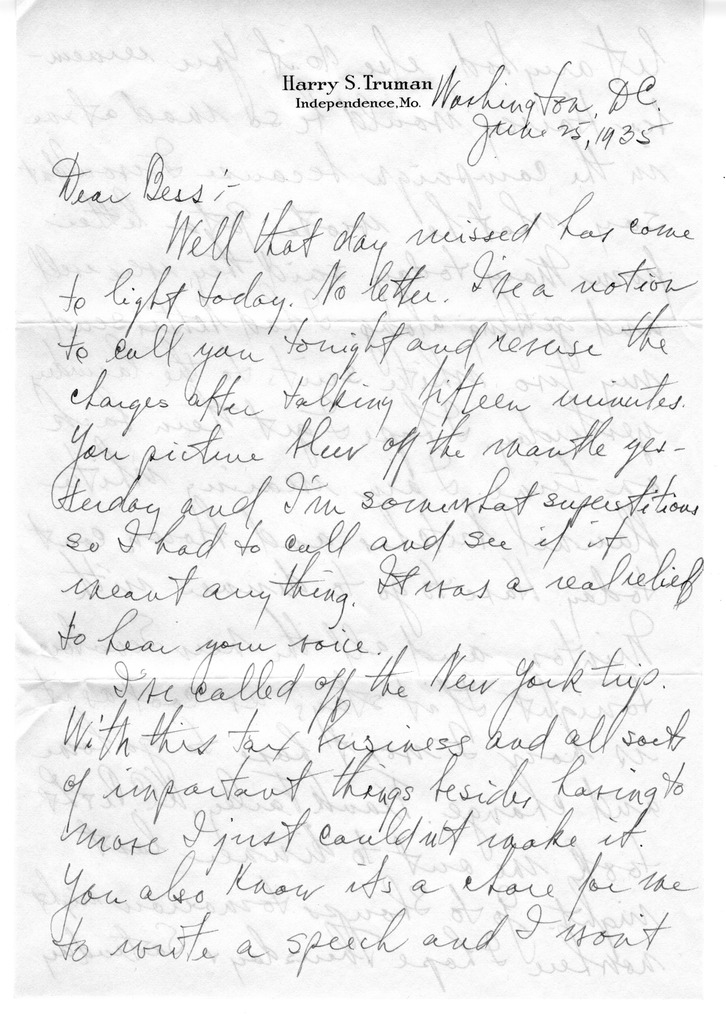 Harry S. Truman
Independence, Mo.
Washington, D.C.
June 25, 1935
Dear Bess:-
Well that day missed has come
to light today. No letter. I've a notion
to call you tonight and reverse the
charges after talking fifteen minutes.
You picture blew off the mantle yes-
terday and I'm somewhat superstitious
so I had to call and see if it
meant anything. It was a real relief
to hear your voice.
I've called off the New York trip.
With this tax business and all sorts
of important things besides having to
move I just couldn't make it.
You also know its a chore for me
to write a speech and I won't